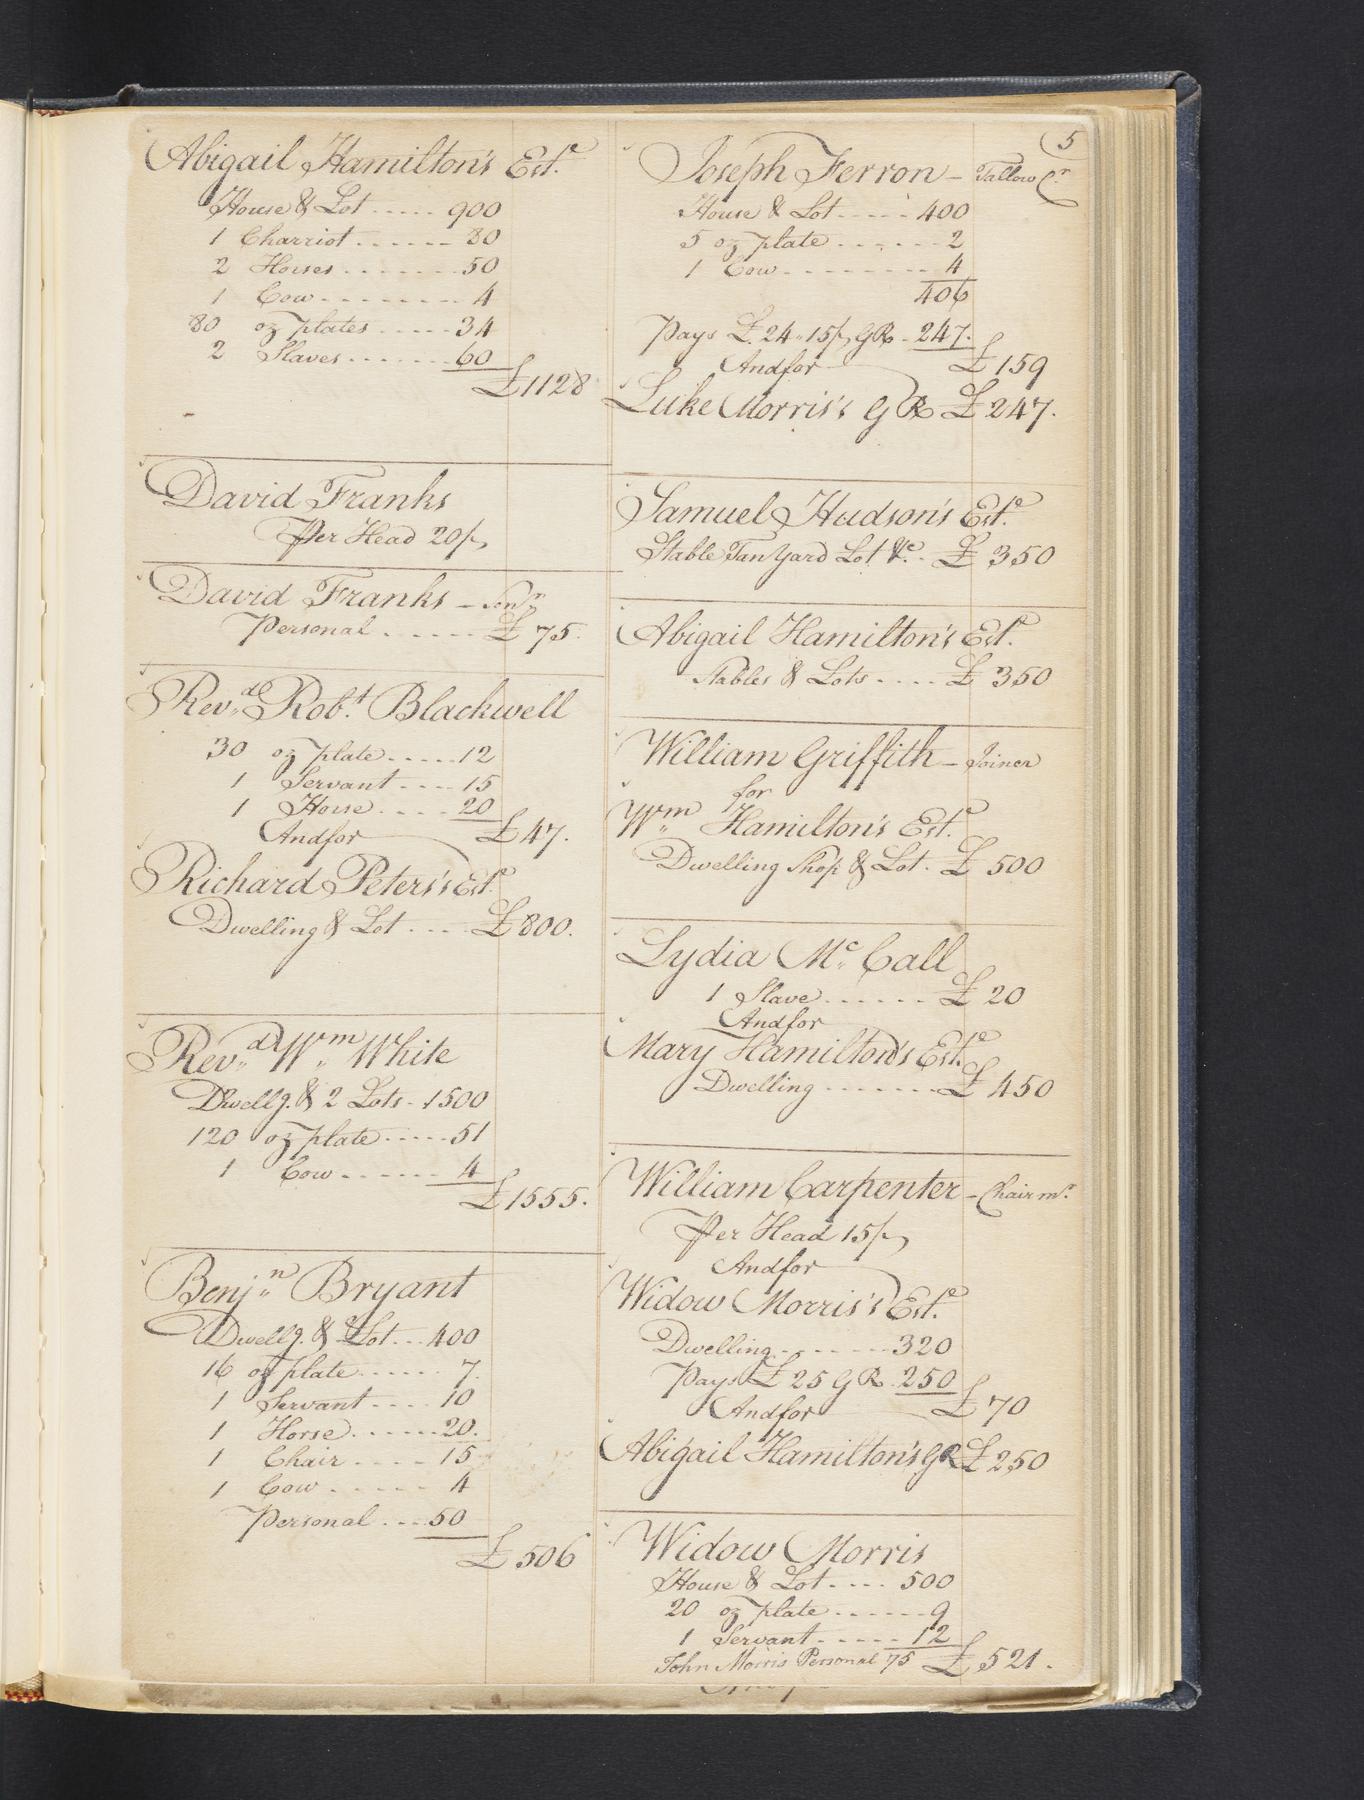 5
Abigail Hamilton's Est.e
House & Lot ..... 900
1 Charriot ....... 80
2 Horses ........ 50
1 Cow ......... 4
80 oz plates ..... 34
2 Slaves ....... 60
£1128
David Franks
Per Head 20/
David Franks - Senr
Personal ...... £75.
Revd. Robt. Blackwell
30 oz plate ..... 12
1 Servant .... 15
1 Horse .... 20
Andfor £47.
Richard Peters's Est.e
Dwelling & Lot .... £800.
Revd. Wm. White
Dwellg. & 2 Lots - 1500
120 oz plate ..... 51
1 Cow ...... 4
£1555.
Benjn. Bryant
Dwellg. & Lot ... 400
16 oz plate ...... 7.
1 Servant .... 10
1 Horse ...... 20.
1 Chair .... 15
1 Cow ..... 4
Personal ... 50
£506
Joseph Ferron - Tallow Cr
House & Lot ..... 400
5 oz plate ...... 2
1 Cow ......... 4
406
Pays £.24 " 15/ GR - 247.
Andfor £159
Luke Morris's GR £247.
Samuel Hudson's Est.e
Stable Tan Yard Lot &c. - £350
Abigail Hamilton's Est.e
Stables & Lots .... £350
William Griffith - Joiner
for
Wm. Hamilton's Est.e
Dwelling Shop & Lot . £500
Lydia Mc. Call
1 Slave ...... £20
Andfor
Mary Hamilton's Est.e
Dwelling ....... £450
William Carpenter - Chair mr.
Per Head 15/
Andfor
Widow Morris's Est.e
Dwelling ....... 320
Pays £25 GR . 250
Andfor £70
Abigail Hamilton's GR £250
Widow Morris
House & Lot .... 500
20 oz plate ...... 9
1 Servant ..... 12
John Morris Personal 75 £521.